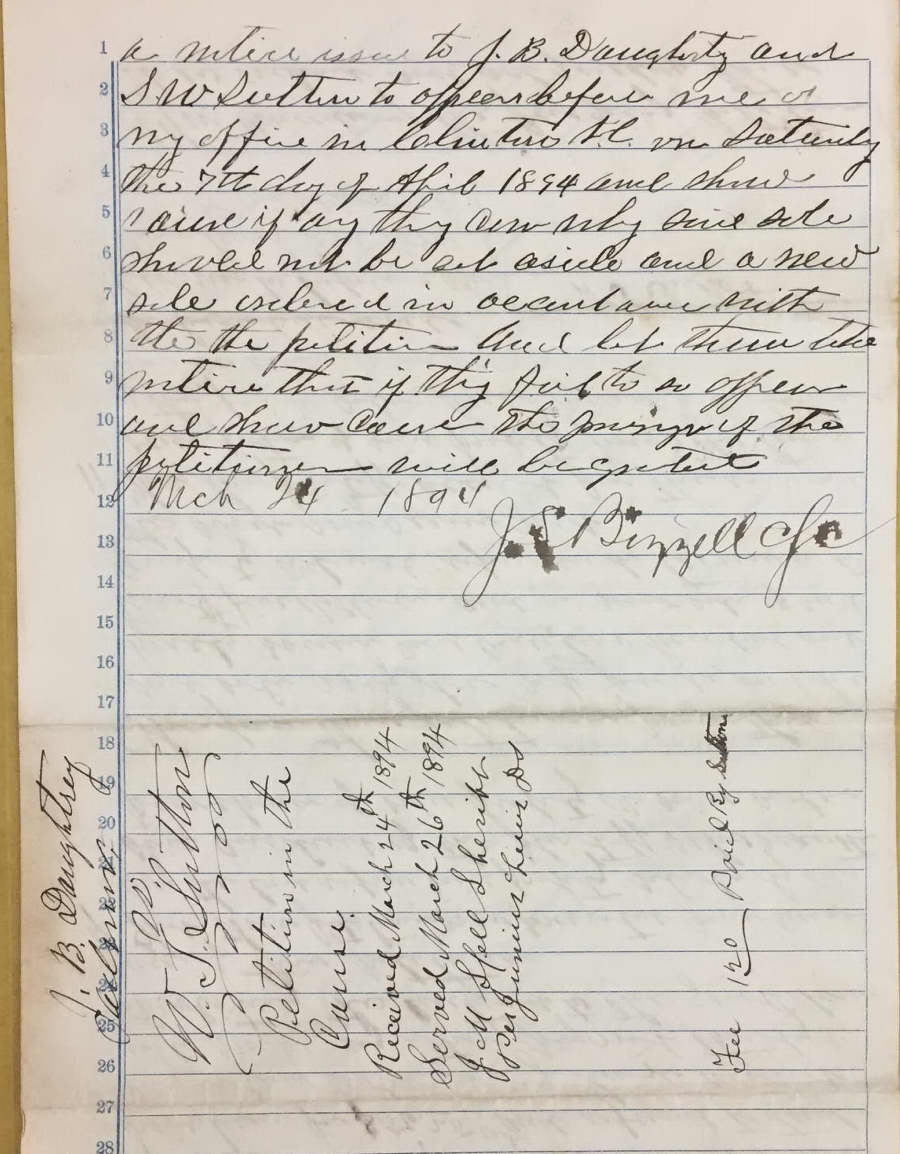 a notice issue to J. B. Daughtry and
S W Sutton to appear before me at
my office in Clinton N.C. on Saturday
the 7th day of April 1894 and show
cause if any they can why said sale
should not be set aside and a new
sale ordered in accordance with
the the petition And let them take
notice that if they fail to so appear
and show cause the prayer of the
petitioner will be granted
Mch 24 1894
J. S. Bizzell CSC
J. B. Daughtrey
vs
W. S. Sutton
Petition in the
Cause.
Received March 24th 1894
Served March 26th 1894
J M Spell Sheriff
Per Junius Lewis DS
Fee 120 Paid By Sutton
1
2
3
4
5
6
7
8
9
10
11
12
13
14
15
16
17
18
19
20
21
22
23
24
25
26
27
28